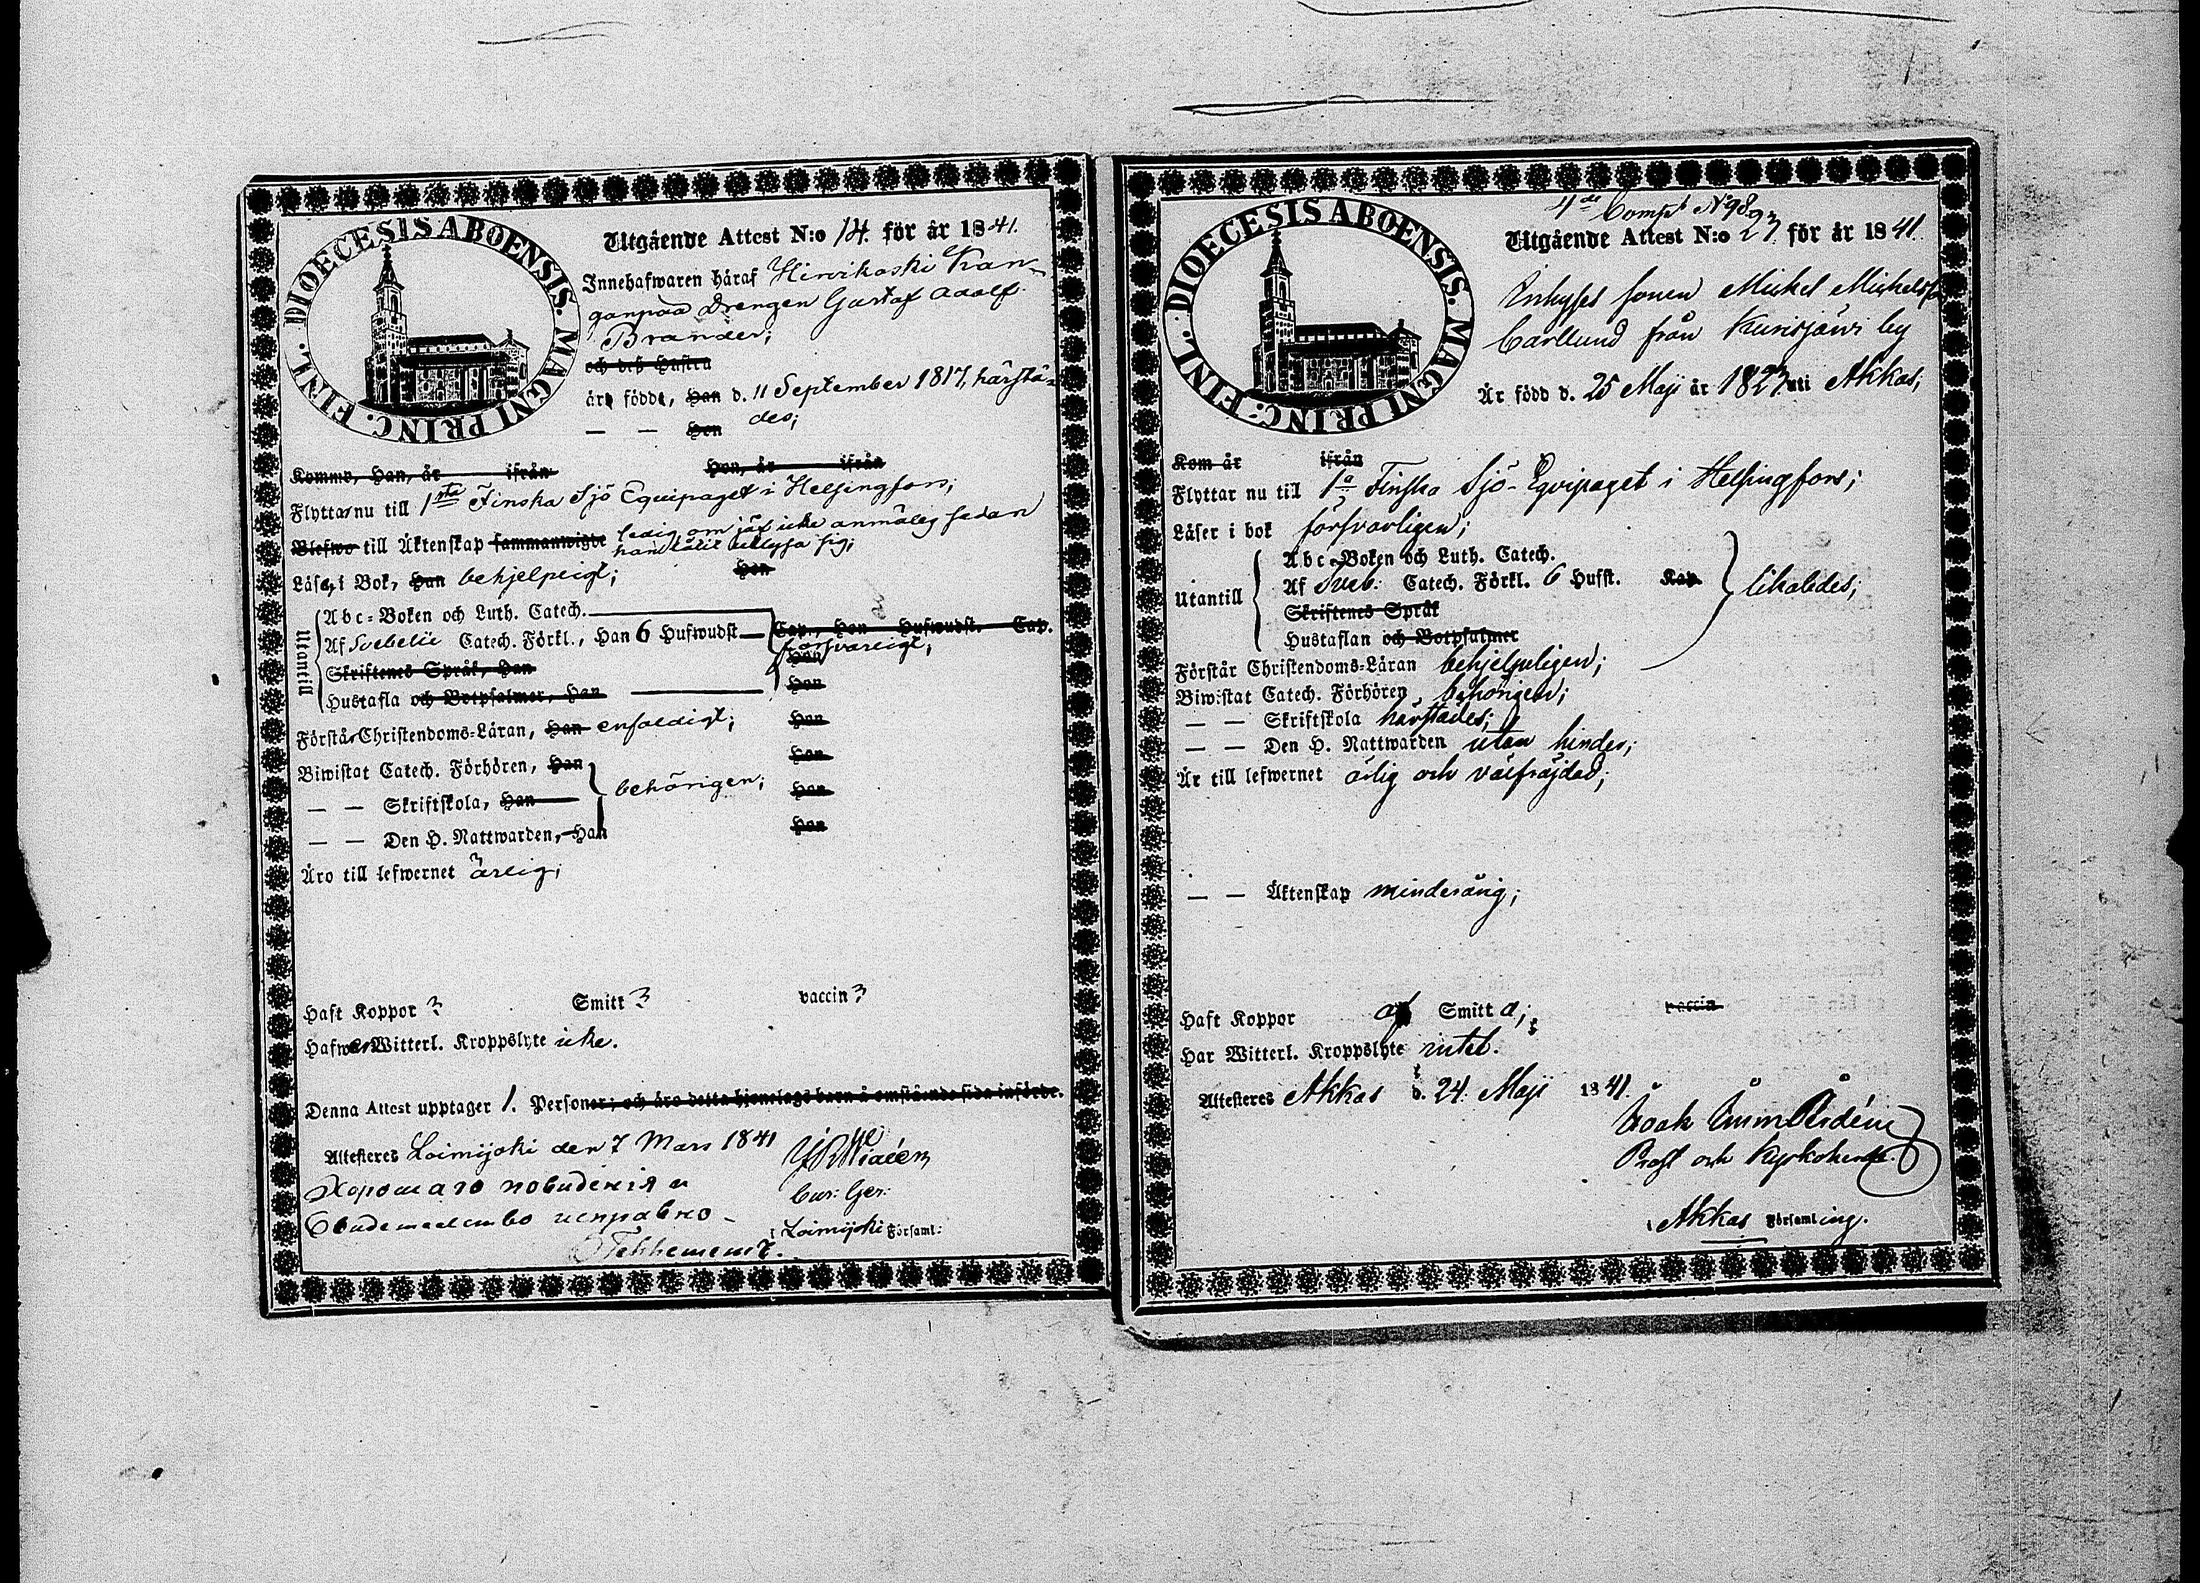 DIOECESIS ABOENSIS. MAGNI PRINC. FINL.
Utgående Attest N:o 14. för år 1841.
Innehafwaren häraf Hirvikoski Kan-
ganpää Drengen Gustaf Adolf
Brander;
och deß Hustru
äro födde, Han d. 11 September 1817, härstä-
des;
— — Hon
Kommo, Han, år ifrån Hon, år ifrån
Flyttar nu till 1sta Finska Sjö Equipaget i Helsingfors;
Blefwo till Äktenskap sammanwigde ledig om jäf icke anmäles sedan
han låtit utlysa sig;
Läser i Bok, Han behjelpligt; Hon
Utantill
Abc-Boken och Luth. Catech.
Af Svebelii Catech. Förkl., Han 6 Hufwudst. Cap., Hon Hufwudst. Cap.
försvarligt;
Skriftenes Språk, Han Hon
Hustafla och Botpsalmer, Han Hon
Förstår Christendoms-Läran, Han enfaldigt; Hon
Biwistat Catech. Förhören, Han Hon
— — Skriftskola, Han behörigen; Hon
— — Den H. Nattwarden, Han Hon
Äro till lefwernet ärlig;
Haft Koppor ? Smitt ? vaccin ?
Hafwer Witterl. Kroppslyte icke.
Denna Attest upptager 1. Personer; och äro detta hjonelags barn å omstående sida införde.
Attesteres Loimijoki den 7 Mars 1841
Хорошаго поведенія и
Свидетельство исправно
Cur: Ger:
i Loimijoki Församl:
DIOECESIS ABOENSIS. MAGNI PRINC: FINL.
4de Comp: N 98
Utgående Attest N:o 23. för år 1841.
Inhyses sonen Michel Michelsson
Carllund från Kurisjärvi by
Är född d. 25 Maji år 1823 uti Akkas;
Kom år ifrån
Flyttar nu till 1a Finska Sjö-Eqvipaget i Helsingfors;
Läser i bok försvarligen;
Utantill
Abc-Boken och Luth. Catech.
Af Sveb: Catech. Förkl. 6 Hufst. Kap. likaledes;
Skriftenes Språk
Hustaflan och Botpsalmer
Förstår Christendoms-Läran behjelpeligen;
Biwistat Catech. Förhören behörigen;
— — Skriftskola härstädes;
— — Den H. Nattwarden utan hinder;
Är till lefwernet ärlig och välfräjdad;
— — Äktenskap minderårig;
Haft Koppor Smitt a; vaccin
Har Witterl. Kroppslyte intet.
Attesteres Akkas d. 24. Maji 1841.
Prost och Kyrkoherde.
i Akkas Församling.